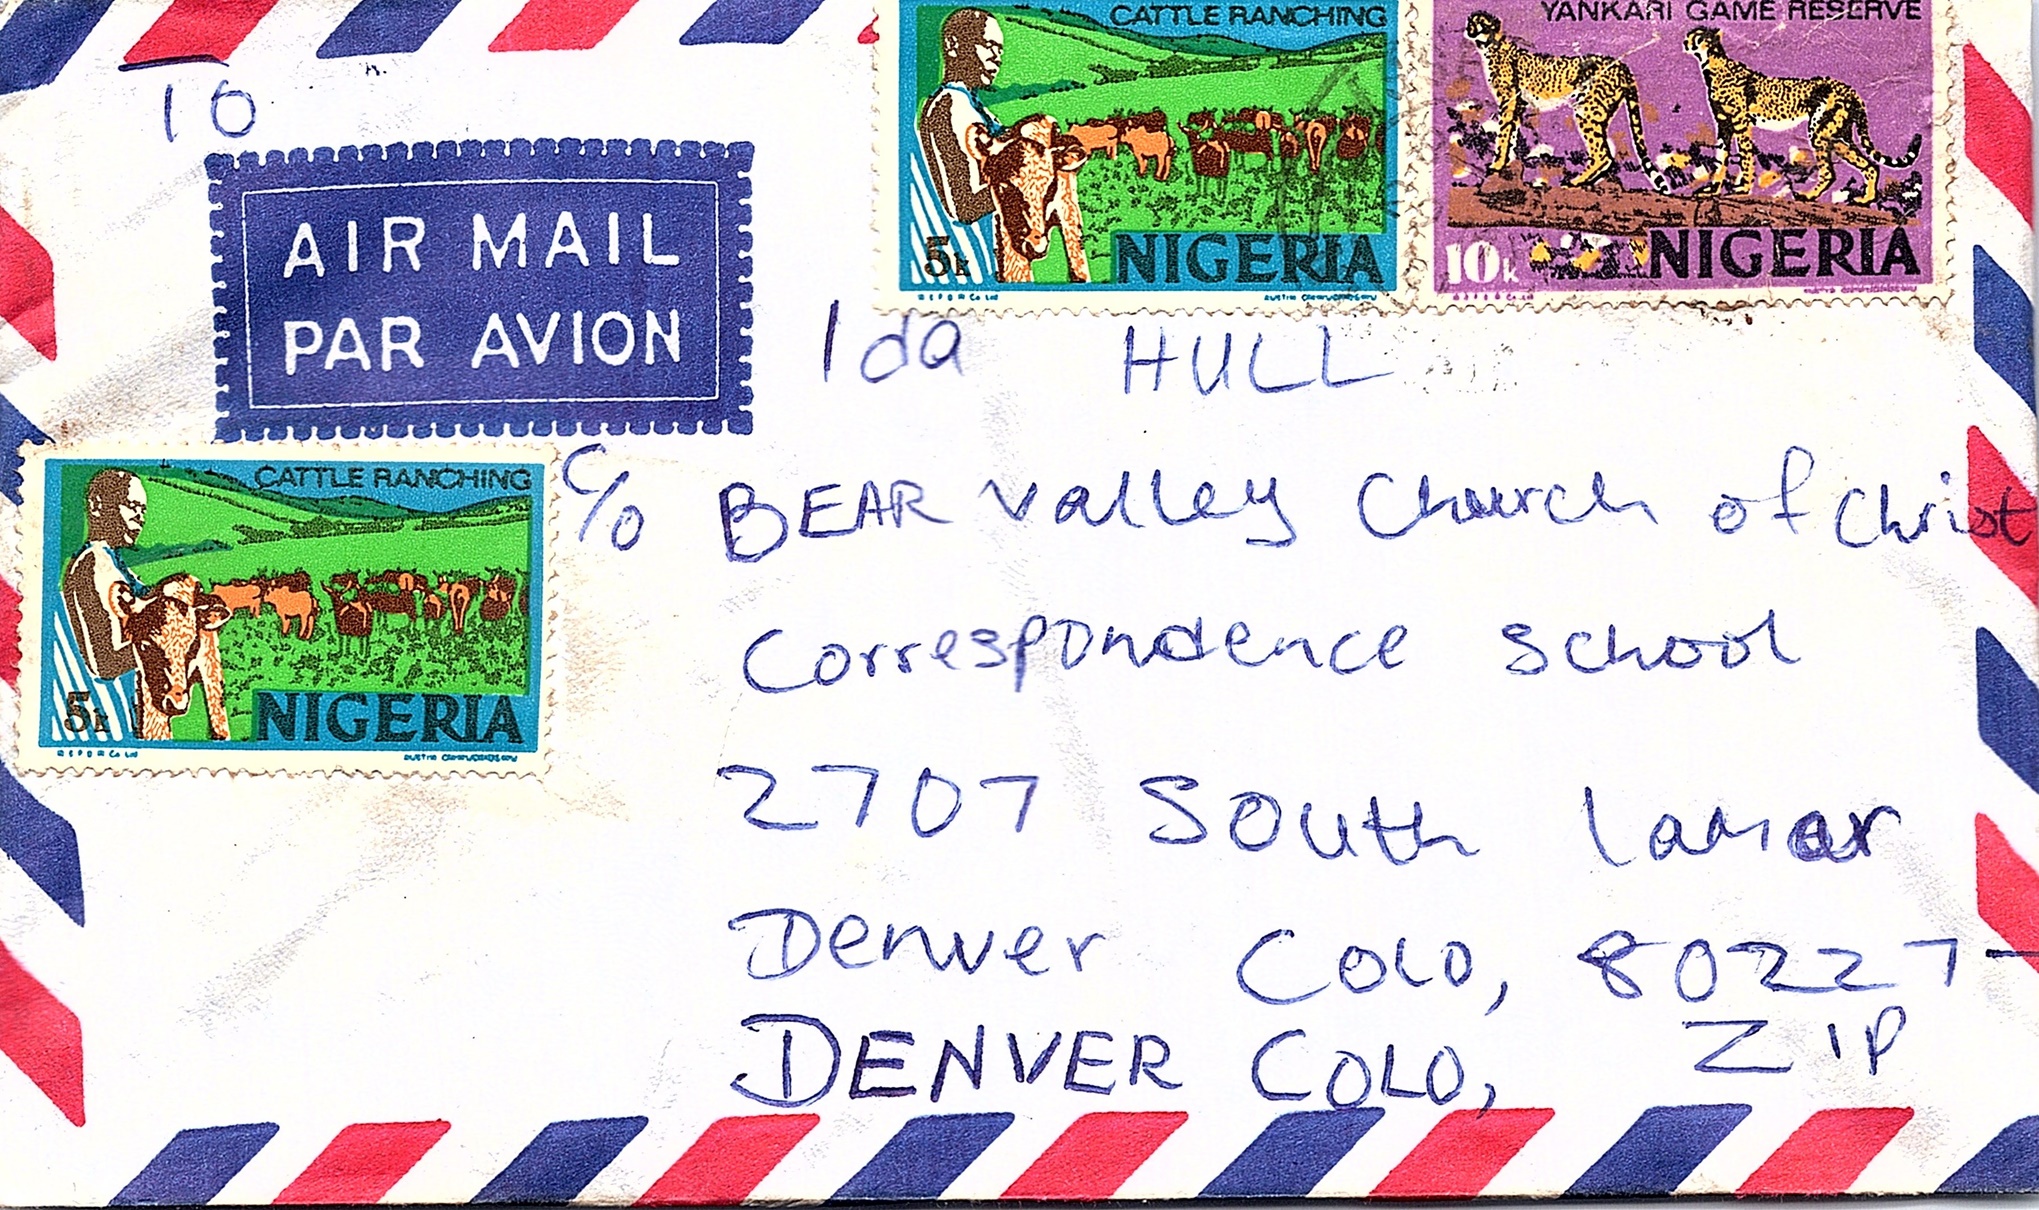 CATTLE RANCHING
5k NIGERIA
YANKARI GAME RESERVE
10k NIGERIA
TO
AIR MAIL
PAR AVION
CATTLE RANCHING
5k NIGERIA
Ida HULL
C/O BEAR Valley Church of Christ
Correspondence School
2707 South Lamar
Denver Colo, 80227-
DENVER COLO, ZIP